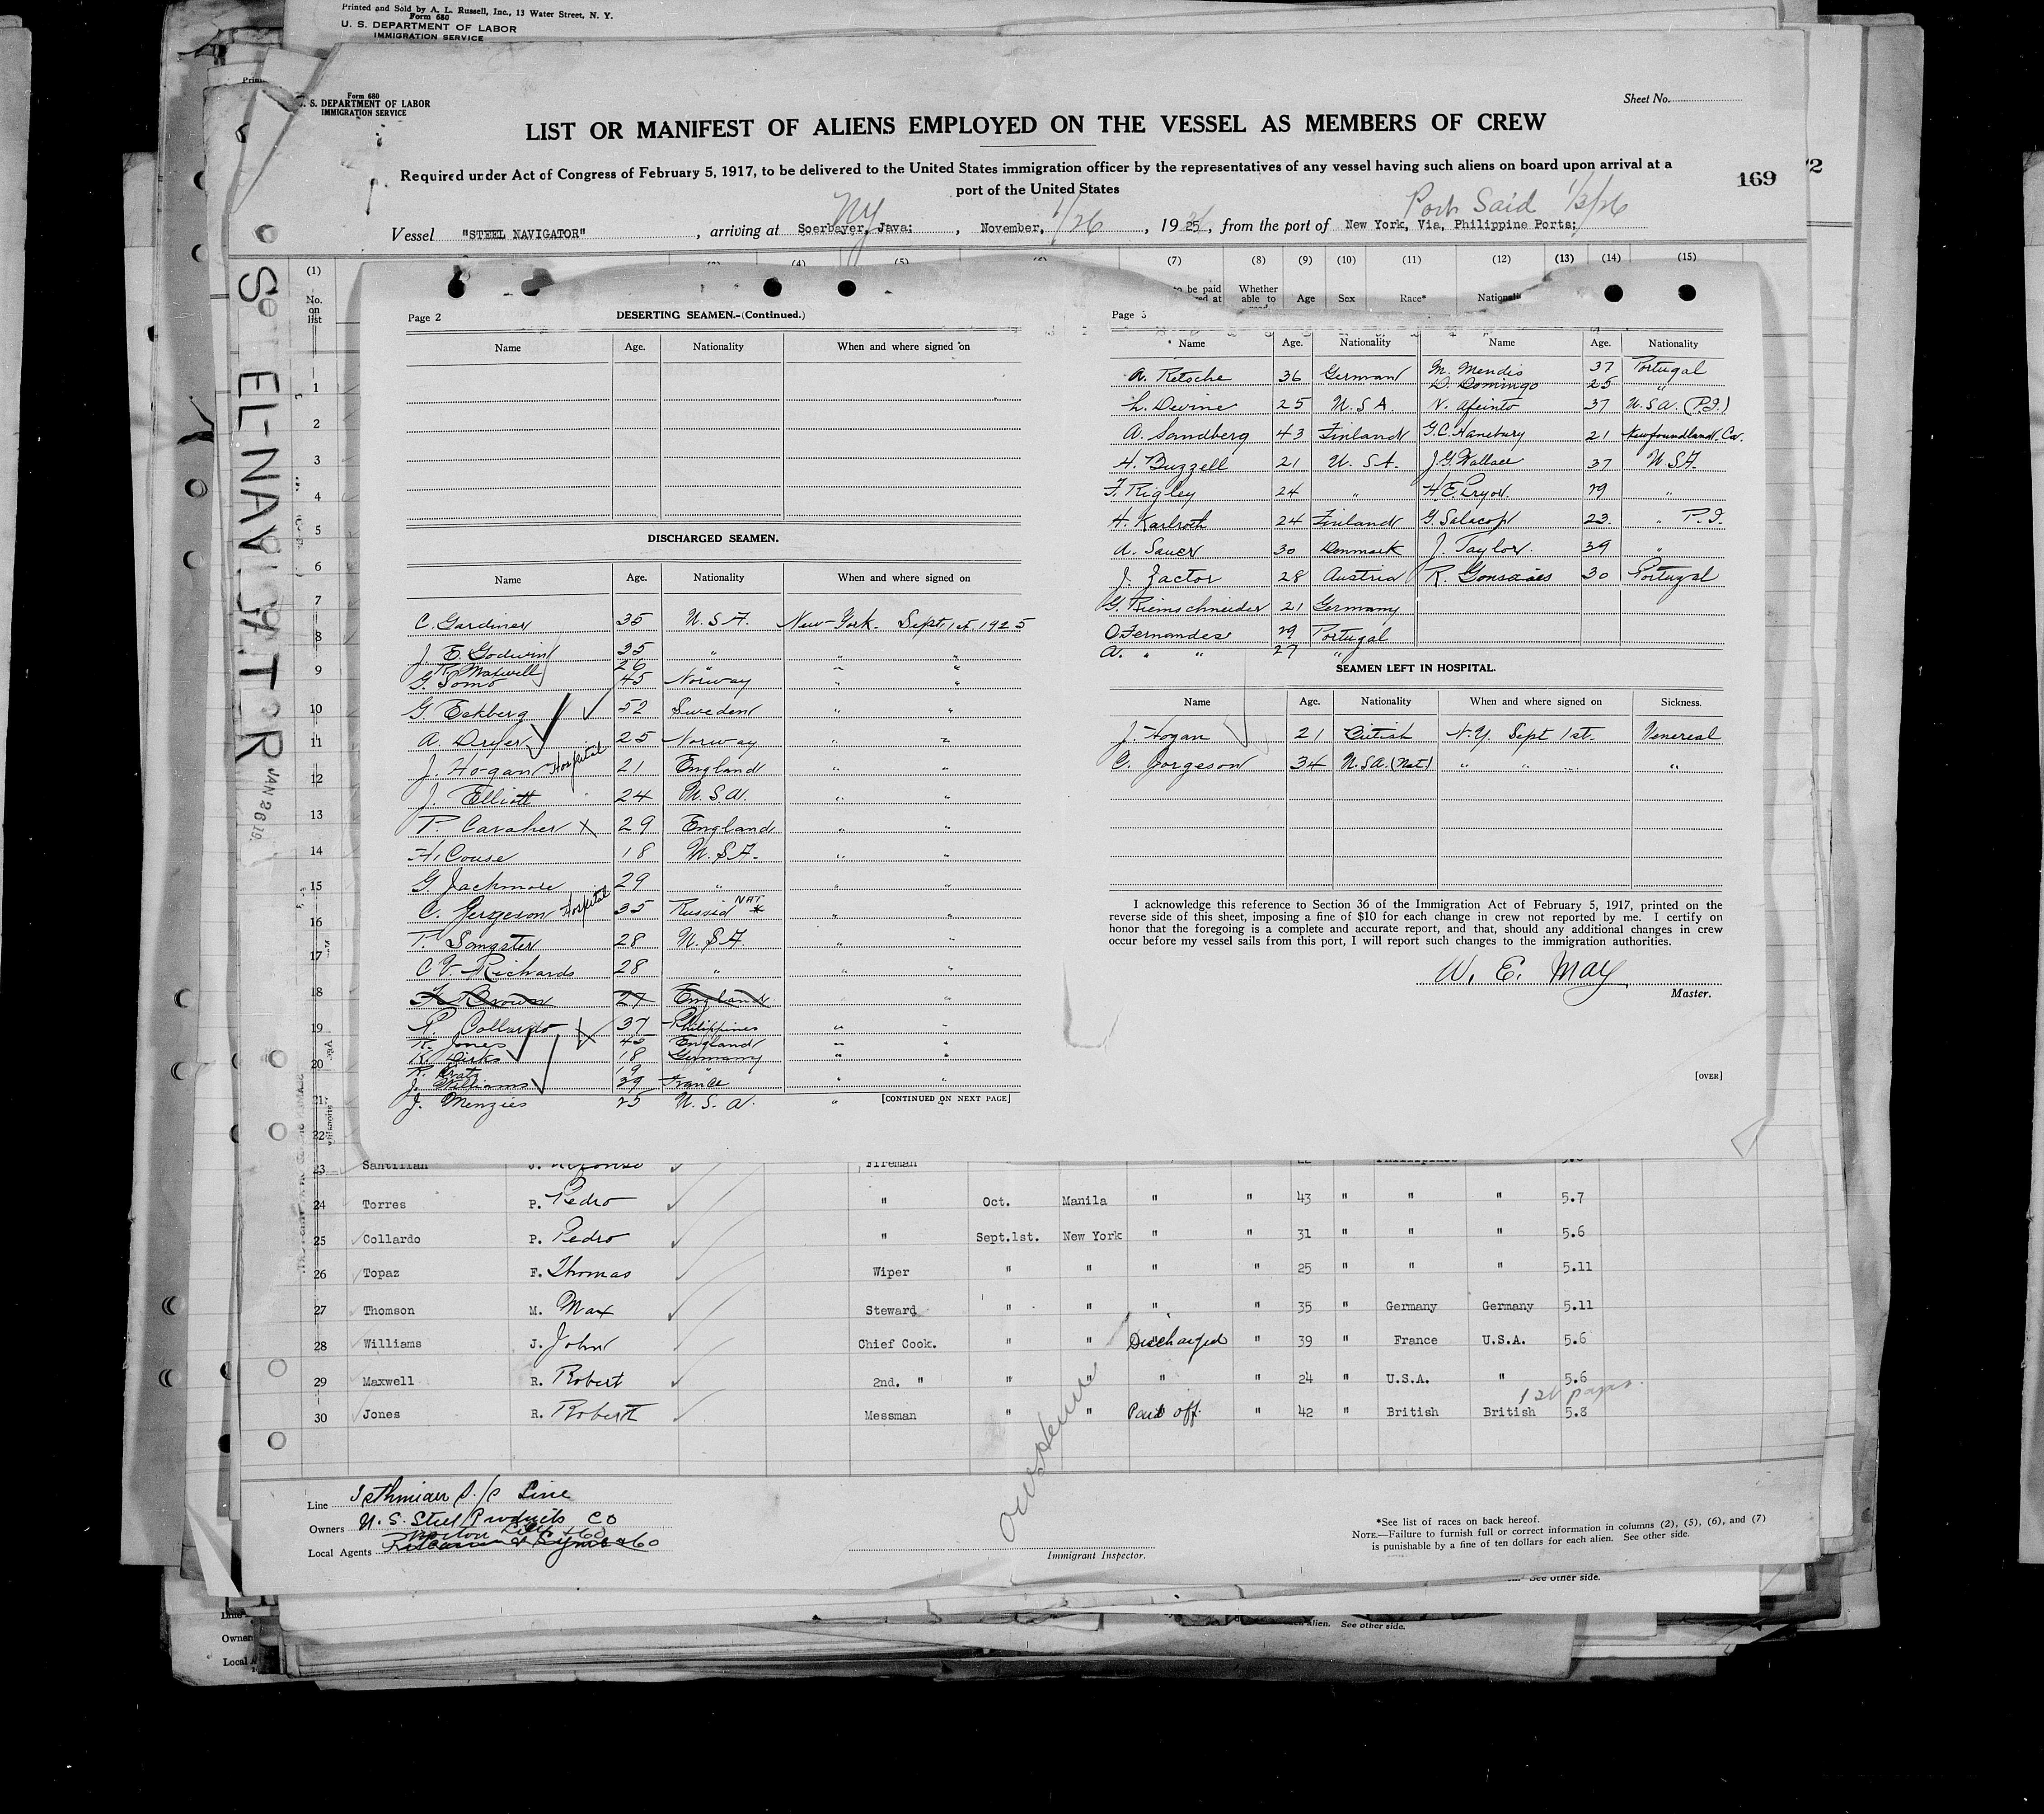 Printed and Sold by A. L. Russell, Inc., 13 Water Street, N. Y.
Form 680
U. S. DEPARTMENT OF LABOR
IMMIGRATION SERVICE
Form 680
U. S. DEPARTMENT OF LABOR
IMMIGRATION SERVICE
Sheet No.
LIST OR MANIFEST OF ALIENS EMPLOYED ON THE VESSEL AS MEMBERS OF CREW
Required under Act of Congress of February 5, 1917, to be delivered to the United States immigration officer by the representatives of any vessel having such aliens on board upon arrival at a
port of the United States
169
NY 1/26 Port Said 1/2/26
Vessel "STEEL NAVIGATOR", arriving at Soerbayer, Java; , November, , 1925, from the port of New York, Via, Philippine Ports;
(1) (4) (5) (7) (8) (9) (10) (11) (12) (13) (14) (15)
No. on list
be paid Whether able to Age Sex Race*
JAN 26
Page 2
DESERTING SEAMEN.-(Continued.)
Name Age. Nationality When and where signed on
DISCHARGED SEAMEN.
Name Age. Nationality When and where signed on
C. Gardiner 35 U.S.A. New-York. Sept. 1st. 1925
J. E. Godwin 35 " " "
R. Maxwell 26 "
G. Somo 45 Norway " "
G. Eckberg 52 Sweden " "
A. Dryer 25 Norway " "
J. Hogan Hospital 21 England " "
J. Elliott 24 U.S.A. " "
P. Cavaher X 29 England " "
H. Couse 18 U.S.A. " "
G. Jachmore 29 " " "
C. Jergeson Hospital 35 Russia NAT * " "
T. Sangster 28 U.S.A. " "
C V. Richards 28 " " "
F. Brown 27 England " "
P. Collardo X 37 Philippines " "
R. Jones 42 England " "
K. Dirks 18 Germany " "
R. Kratz 19 "
J. Williams 39 France " "
J. Menzies 25 U.S.A. " "
[CONTINUED ON NEXT PAGE]
Page 3
Name Age. Nationality Name Age. Nationality
A. Retsche 36 German M. Mendes 37 Portugal
D. Domingo 25 "
L. Devine 25 U.S.A. V. Afeinto 37 U.S.A. (P.I.)
A. Sandberg 43 Finland G.C. Hansbury 21 Newfoundland. Ca.
H. Buzzell 21 U.S.A. J.G. Wallace 37 U S A.
F. Rigley 24 " H E. Pryor. 29 "
H. Karlroth 24 Finland G. Salacop 23. " P.I.
A. Sauer 30 Denmark J. Taylor. 39 "
J. Factor 28 Austria R. Gonsaies 30 Portugal
G. Riemschneider 21 Germany
O Fernandes 29 Portugal
A. " " 27 "
SEAMEN LEFT IN HOSPITAL.
Name Age. Nationality When and where signed on Sickness.
J. Hogan 21 British N.Y. Sept 1st. Venereal
C. Jorgeson 34 U.S.A. (Nat) " " " "
I acknowledge this reference to Section 36 of the Immigration Act of February 5, 1917, printed on the
reverse side of this sheet, imposing a fine of $10 for each change in crew not reported by me. I certify on
honor that the foregoing is a complete and accurate report, and that, should any additional changes in crew
occur before my vessel sails from this port, I will report such changes to the immigration authorities.
W. E. May
Master.
[OVER]
1
2
3
4
5
6
7
8
9
10
11
12
13
14
15
16
17
18
19
20
21
22
23 Santillan J. Fireman
24 Torres P. Pedro " Oct. Manila " " 43 " " " 5.7
25 Collardo P. Pedro " Sept.1st. New York " " 31 " " " 5.6
26 Topaz F. Thomas Wiper " " " " 25 " " " 5.11
27 Thomson M. Max Steward " " " " 35 " Germany Germany 5.11
28 Williams J. John Chief Cook. " " Discharged " 39 " France U.S.A. 5.6
29 Maxwell R. Robert 2nd. " " " " " 24 " U.S.A. " 5.6
1st papers.
30 Jones R. Robert Messman " " Paid off. " 42 " British British 5.8
Line Isthmian S/S Line
Owners U. S. Steel Products Co
Local Agents
Immigrant Inspector.
*See list of races on back hereof.
NOTE.—Failure to furnish full or correct information in columns (2), (5), (6), and (7)
is punishable by a fine of ten dollars for each alien. See other side.
See other side.
alien. See other side.